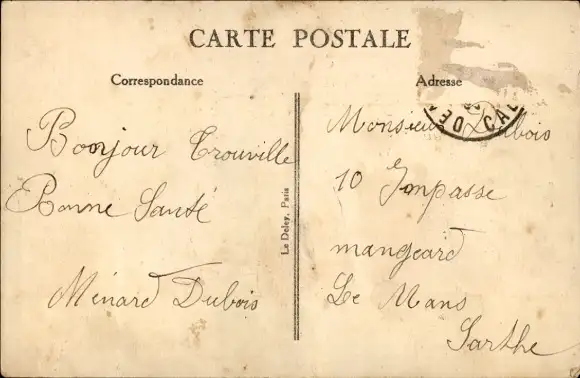 CARTE POSTALE
Correspondance
Bonjour Trouville
Bonne Santé
Ménard Dubois
Le Deley, Paris
Adresse
DE CAL
Monsieur Dubois
10 Impasse
mangeard
Le Mans
Sarthe